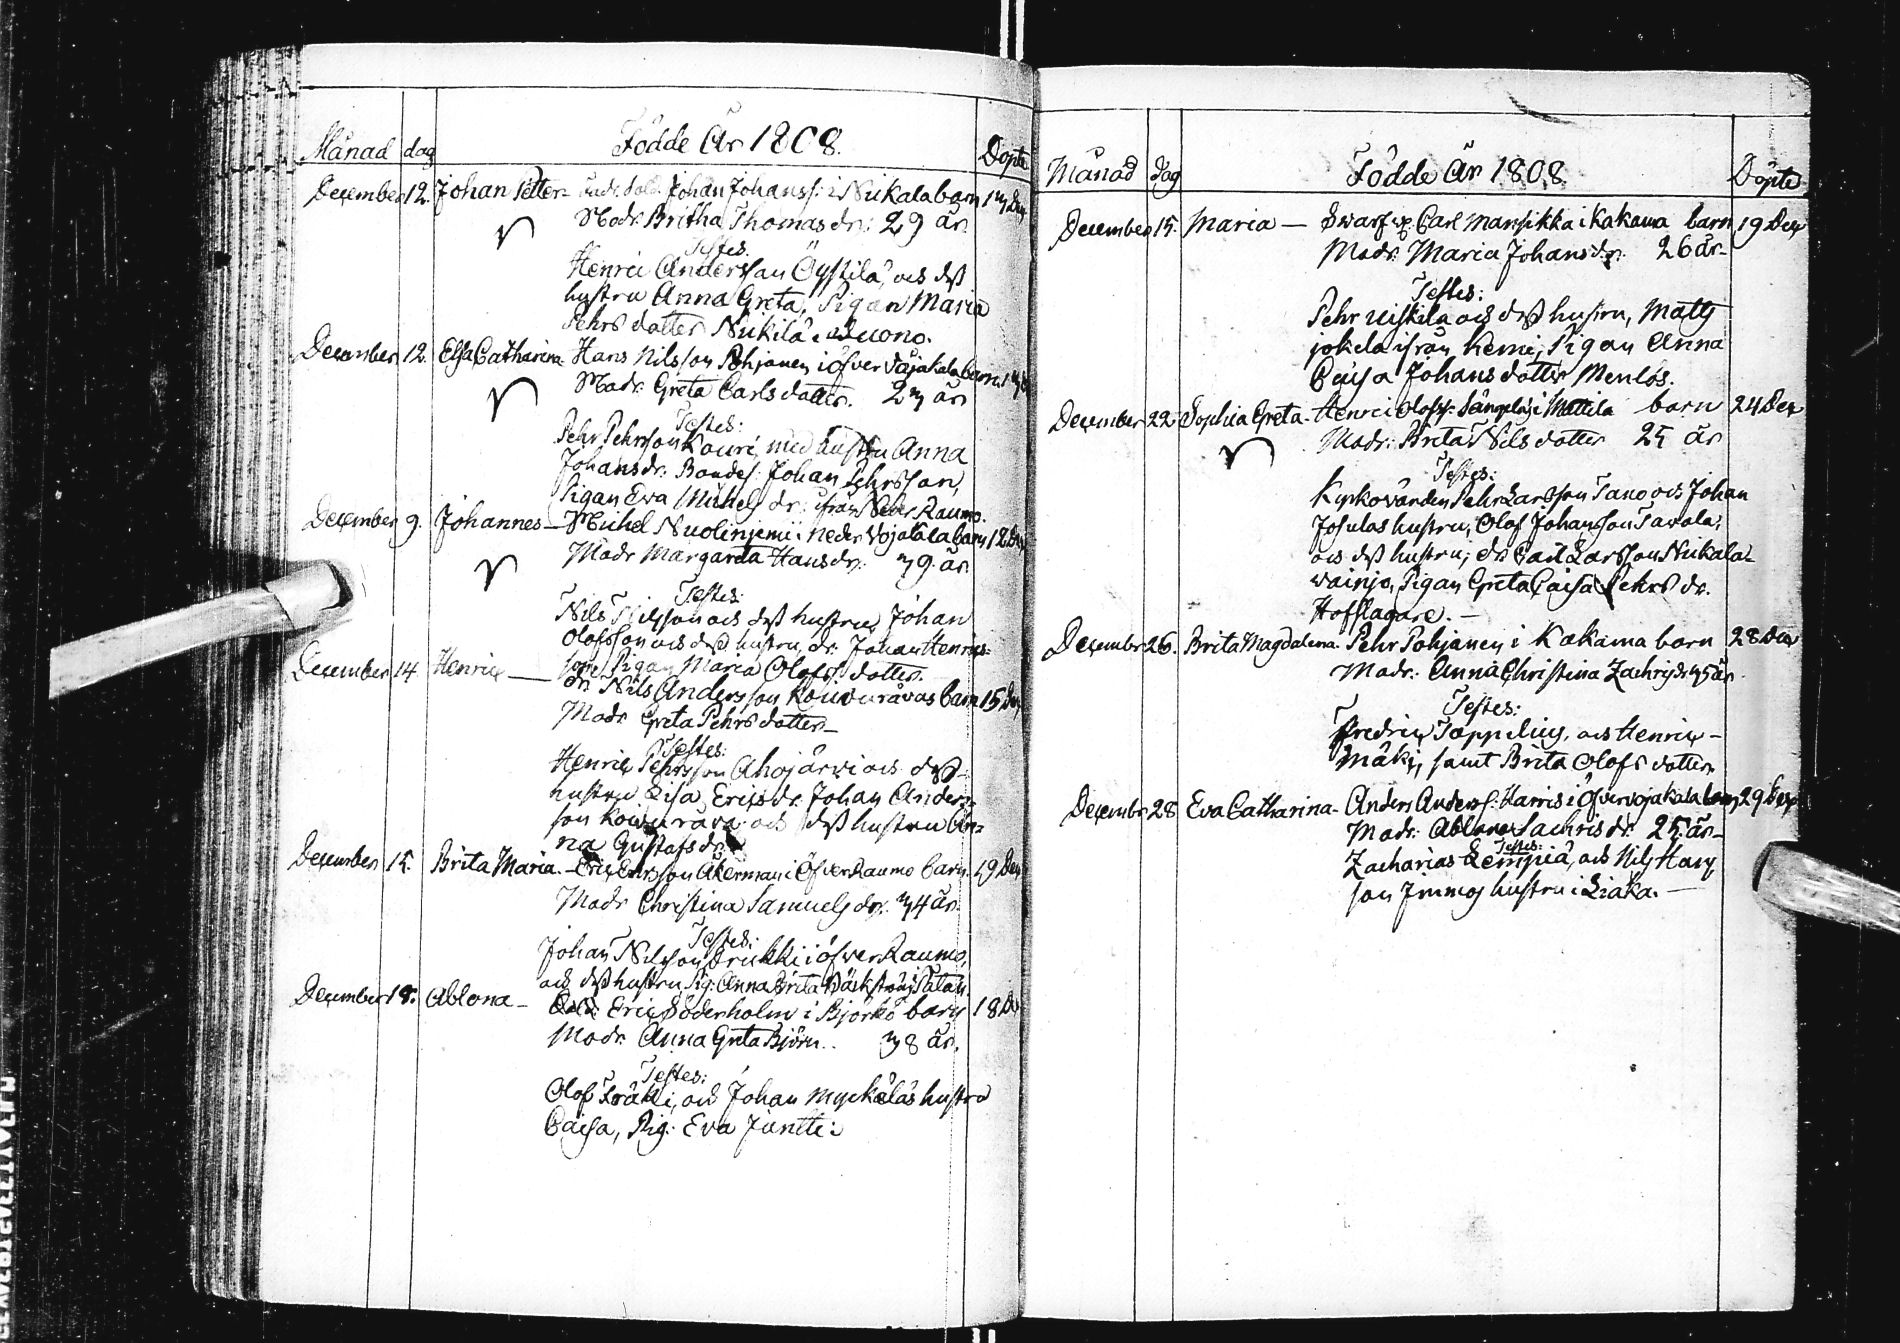 Månad dag Födde År 1808. Döpte
December 12. Johan Petter - Johan Johanss: i Nukala barn 13 Dec
Modr. Britha Thomas dr: 29 år
Testes.
Henric Andersson Öystilä, och dess
hustru Anna Greta, Pigan Maria
Pehrs dotter Nukila
December 12. Elsa Catharina - Hans Nilsson Pohjanen i öfver Vojakala barn
Modr. Greta Carls dotter. 23 år
Testes:
Pehr Pehrsson Kouri, med hustru Anna
Johansdr. Bondes: Johan Pehrsson,
Pigan Eva Michels dr: ifrån Neder Raumo.
December 9. Johannes - Michel Nuolinjemi i neder Vojakala barn 12 Dec
Modr Margareta Hansdr: 39 år
Testes:
Nils Nilsson och dess hustru, Johan
Olofsson och dess hustru, dr. Johan Henrics-
son, Pigan Maria Olofs dotter.
December 14 Henric - dr. Nils Andersson Kouvuravas barn 15 Dec
Modr Greta Pehrs dotter -
Testes:
Henric Pehrsson Ahojärvi och dess
hustru Lisa Ericsdr. Johan Anders-
son Kouvurava och dess hustru An-
na Gustafsdr
December 15. Brita Maria. - Eric Ersson Åkerman i Öfver Raumo barn. 19 Dec
Modr Christina Samuels dr: 34 år.
Testes:
Johan Nilsson Frukki i öfver Raumo,
och dess hustru, Pig: Anna Brita Bäckström
December 18. Ablona - Eric Söderholm i Björkö barn 18 De
Modr. Anna Greta Björn. 38 år.
Testes:
Olof Träkki, och Johan Myckäläs hustru
Caisa, Pig: Eva Juntti:
Månad dag Födde År 1808 Döpte
December 15. Maria - Carl Mansikka i Kakama barn 19 Dec
Modr. Maria Johans dr. 26 år -
Testes:
Pehr Uiskila och dess hustru, Matts
Jokela ifrån Kemi, Pigan Anna
Caisa Johans dotter Menlös.
December 22 Sophia Greta - Henric Olofss: i Mattila barn 24 Dec
Modr: Brita Nils dotter 25 år
Testes:
Kyrkovärden Pehr Larsson Tano och Johan
Josulas hustru, Olof Johansson Tavala,
och dess hustru; dr. Carl Larsson Nukala-
vainjo, Pigan Greta Caisa Pehrs dr.
Hofflagare. -
December 26. Brita Magdalena. Pehr Pohjanen i Kakama barn 28 Dec
Modr: Anna Christina Zachrisdr 35 år.
Testes:
Fredric Toppelius, och Henric -
Mäki, samt Brita Olofs dotter
December 28 Eva Catharina - Anders Anderss: Harris i Öfver vojakala barn 29 Dec
Modr: Ablona Sachris dr. 25 år -
Testes:
Zacharias Lempiä, och Nils Hans
son Immos hustru i Liaka. -